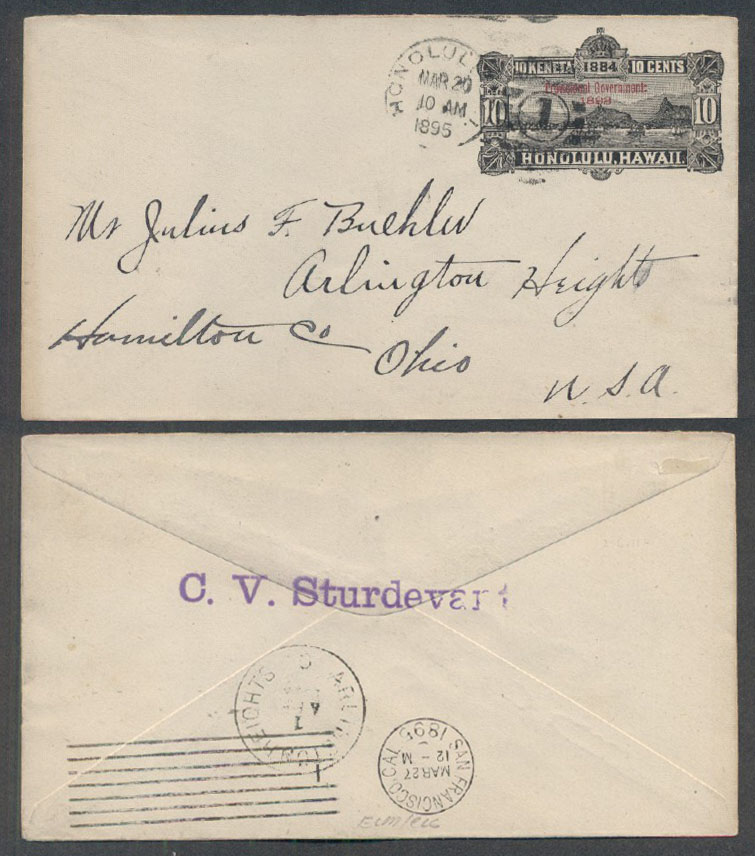 HONOLULU
MAR 20
10 AM
1895
1
10 KENETA 1884 10 CENTS
Provisional Government
1893
10 10
HONOLULU, HAWAII.
Mr Julius F. Buehler
Arlington Heights
Hamilton Co
Ohio
U. S. A.
C. V. Sturdevant
ARLINGTON HEIGHTS O
1
SAN FRANCISCO, CAL. 1895
MAR 27
12 - M